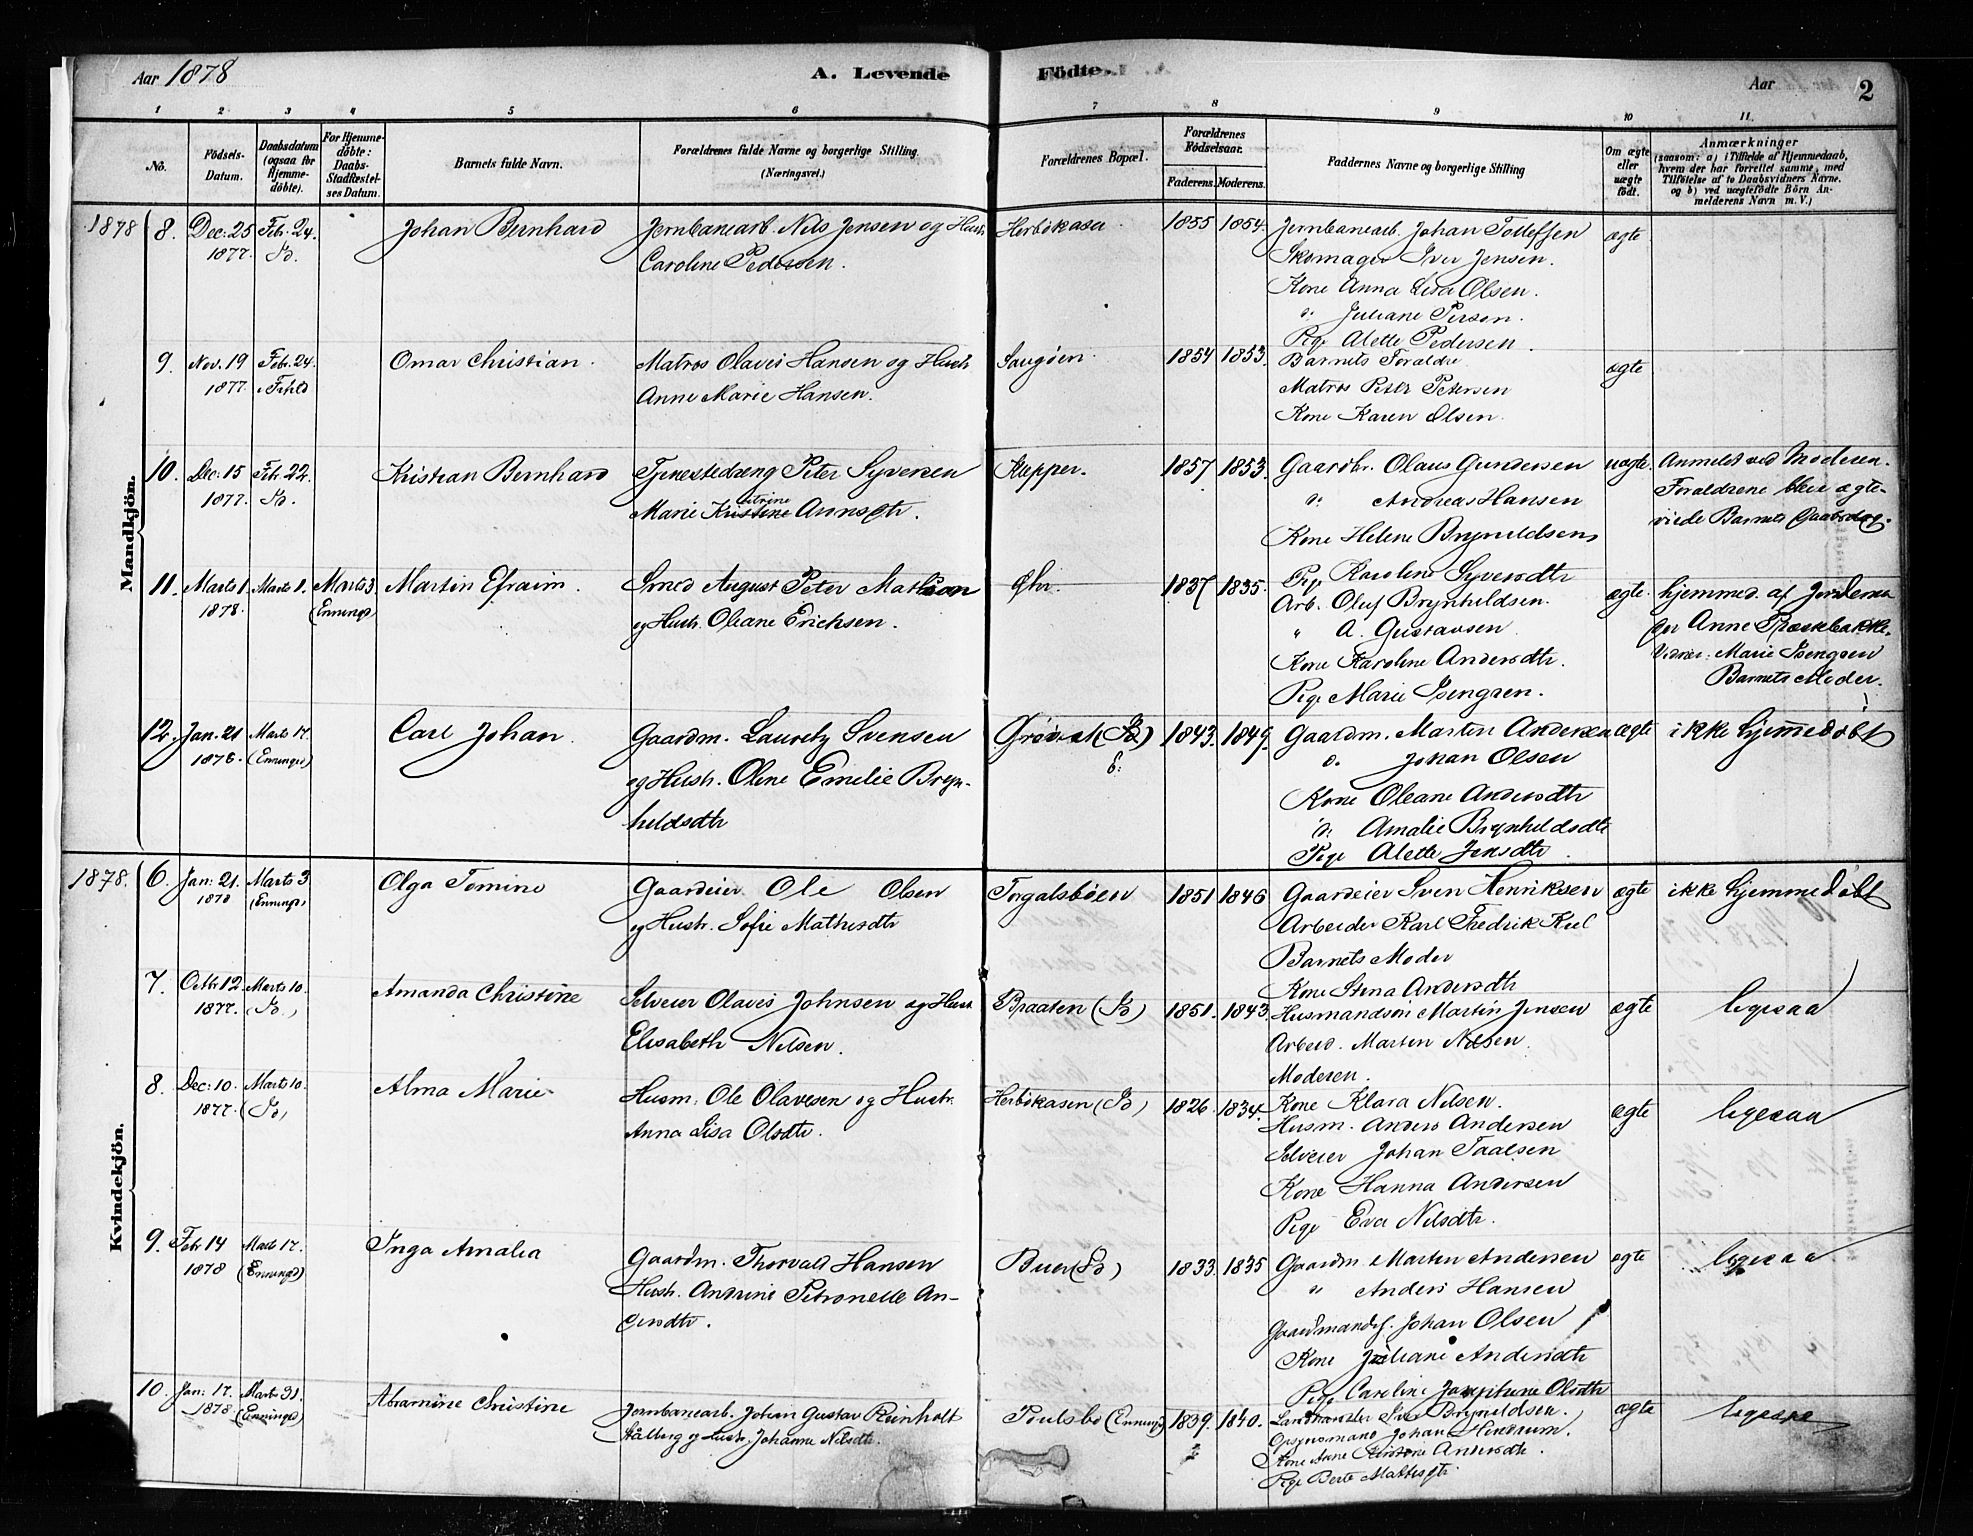 Aar 1878
A. Levende
Födte.
Aar
2
1 2 3 4 5 6 7 8 9 10 11.
No.
Födsels-Datum.
Daabsdatum (ogsaa for Hjemme-döbte).
For Hjemme-döbte: Daabs-Stadfæstel-ses Datum.
Barnets fulde Navn.
Forældrenes fulde Navne og borgerlige Stilling.
(Næringsvei.)
Forældrenes Bopæl.
Forældrenes Födselsaar.
Faderens. Moderens.
Faddernes Navne og borgerlige Stilling
Om ægte eller uægte födt.
Anmærkninger
(saasom: a) i Tilfælde af Hjemmedaab,
hvem der har forrettet samme, med
Tilföielse af to Daabsvidners Navne,
og b) ved uægtefödte Börn An-
melderens Navn m. V.)
Mandkjön.
1878 8. Dec: 25 1877. Febr. 24.
Johan Bernhard
Jernbanearb. Nils Jensen og Hustr.
Caroline Pedersen.
Herbökasa
1855 1854.
Jernbanearb. Johan Tollefsen
Skomager Iver Jensen.
Kone Anna Lisa Olsen.
d: Juliane Persen.
Pige Alette Pedersen.
ægte
9. Nov. 19 1877. Febr. 24.
Omar Christian.
Matros Olaves Hansen og Hustr.
Anne Marie Hansen.
Saugöen
1854 1853.
Barnets Foraldre
Matros Peter Petersen
Kone Karen Olsen.
ægte
10. Dec: 15 1877. Febr. 22.
Kristian Bernhard
Tjenestedræng Peter Syversen
Marie Kristine Arnsdtr.
Klepper.
1857 1853.
Gaardbr. Olaus Gundersen
d: Andreas Hansen
Kone Helene Brynildsens
Pige Karoline Syversdtr
uægte.
Anmeldt ved Moderen.
Foraldrene blev ægte-
viede Barnets Daabsdag.
11. Marts 1. 1878. Marts 1. Marts 3 (Enninge)
Martin Efraim.
Smed August Peter Matson
og Hustr. Oleane Erichsen.
Öhr.
1837 1835.
Arb. Oluf Brynhildsen.
" A. Gustavsen
Kone Karoline Andersdtr.
Pige Marie Isengren.
ægte.
hjemmed. af Jordemo
der Anne Præstebakke.
Vidner: Marie Isengren
Barnets Moder.
12. Jan. 21 1878. Marts 17. (Enninge)
Carl Johan.
Gaardm. Lauretz Svensen
og Hustr. Oline Emelie Bryn-
hildsdtr
1843. 1849.
Gaardm. Martin Andersen
d. Johan Olsen
Kone Oleane Andersdtr
d: Amalie Brynhildsdtr
Pige Alette Jensdtr.
ægte
ikke hjemmedöbt
Kvindekjön.
1878. 6. Jan: 21. 1878 Marts 3 (Enninge)
Olga Tomine
Gaardeier Ole Olsen
og Hustr. Sofie Mathisdtr
Ingalsböen
1851 1846
Gaardeier Sven Henriksen
Arbeider Karl Fredrik Kiel
Barnets Moder
Kone Stina Andersdtr
ægte
ikke hjemmedöbt
7. Octbr. 12. 1877. Marts 10.
Amanda Christine
Selveier Olaves Johnsen og Hustr.
Elisabeth Nilsen.
Braaten
1851. 1843.
Husmandsön Martin Jensen
Arbeid. Martin Nilsen.
Moderen.
Kone Klara Nilsen.
ægte
ligesaa
8. Dec: 10. 1877. Marts 10.
Alma Marie
Husm. Ole Olavesen og Hustr.
Anna Lisa Olsdtr.
Herbökasen
1826. 1834.
Husm. Anders Andersen
Selveier Johan Taalsen
Kone Hanna Andersen
Pige Eva Nilsdtr.
ægte
ligesaa
9. Febr 14 1878 Marts 17. (Enninge)
Inga Amalia
Gaardm. Thorvald Hansen
Hustr. Andrine Petronelle An-
dersdtr.
Buer
1833. 1835
Gaardm. Martin Andersen
" Anders Hansen
Gaardmands. Johan Olsen
Kone Juliane Andersdtr
Pige Caroline Josephine Olsdtr
ægte
ligesaa
10. Jan: 17. 1878 Marts 31. (Enninge)
Abramine Christine
Jernbanearb. Johan Gustav Reinholt
Aalberg og Hustr. Johanne Nilsdtr.
Poulsbo (Enninge)
1839. 1840.
Landhandler Iver Brynildsen.
Opsynsmand Johan Hindrum.
Kone Anne Kirstine Andersdtr.
Pige Berte Mathisdtr.
ægte
ligesaa